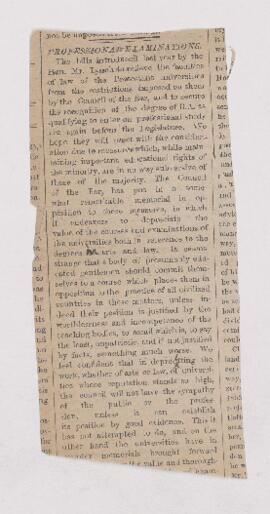 not be imposed
PROFESSIONAL EXAMINATIONS.
The bills introduced last year by the
Hon. Mr. Lynch to relieve the faculties
of law of the Protestant universities
from the restrictions imposed on them
by the Council of the Bar, and to secure
the recognition of the degree of B.A. as
qualifying to enter on professional study
are again before the Legislature. We
hope they will meet with the consideration
due to measures which, while maintaining
important educational rights of
the minority, are in no way subversive of
those of the majority. The Council
of the Bar, has put in a somewhat
remarkable memorial in opposition
to these measures, in which
it endeavors to depreciate the
value of the courses and examinations of
the universities both in reference to the
degrees in arts and law. It seems
strange that a body of presumably educated
gentlemen should commit themselves
to a course which places them in
opposition to the practice of all civilized
countries in these matters, unless indeed
their position is justified by the
worthlessness and incompetence of the
teaching bodies, to assail which is, to say
the least, unpatriotic, and if not justified
by facts, something much worse. We
feel confident that in depreciating the
work, whether of arts or law, of universities
whose reputation stands so high,
the council will not have the sympathy
of the public or the profession,
unless it can establish
its position by good evidence. This it
has not attempted to do, and on the
other hand the universities have in
memorials brought forward
the value and thorough-